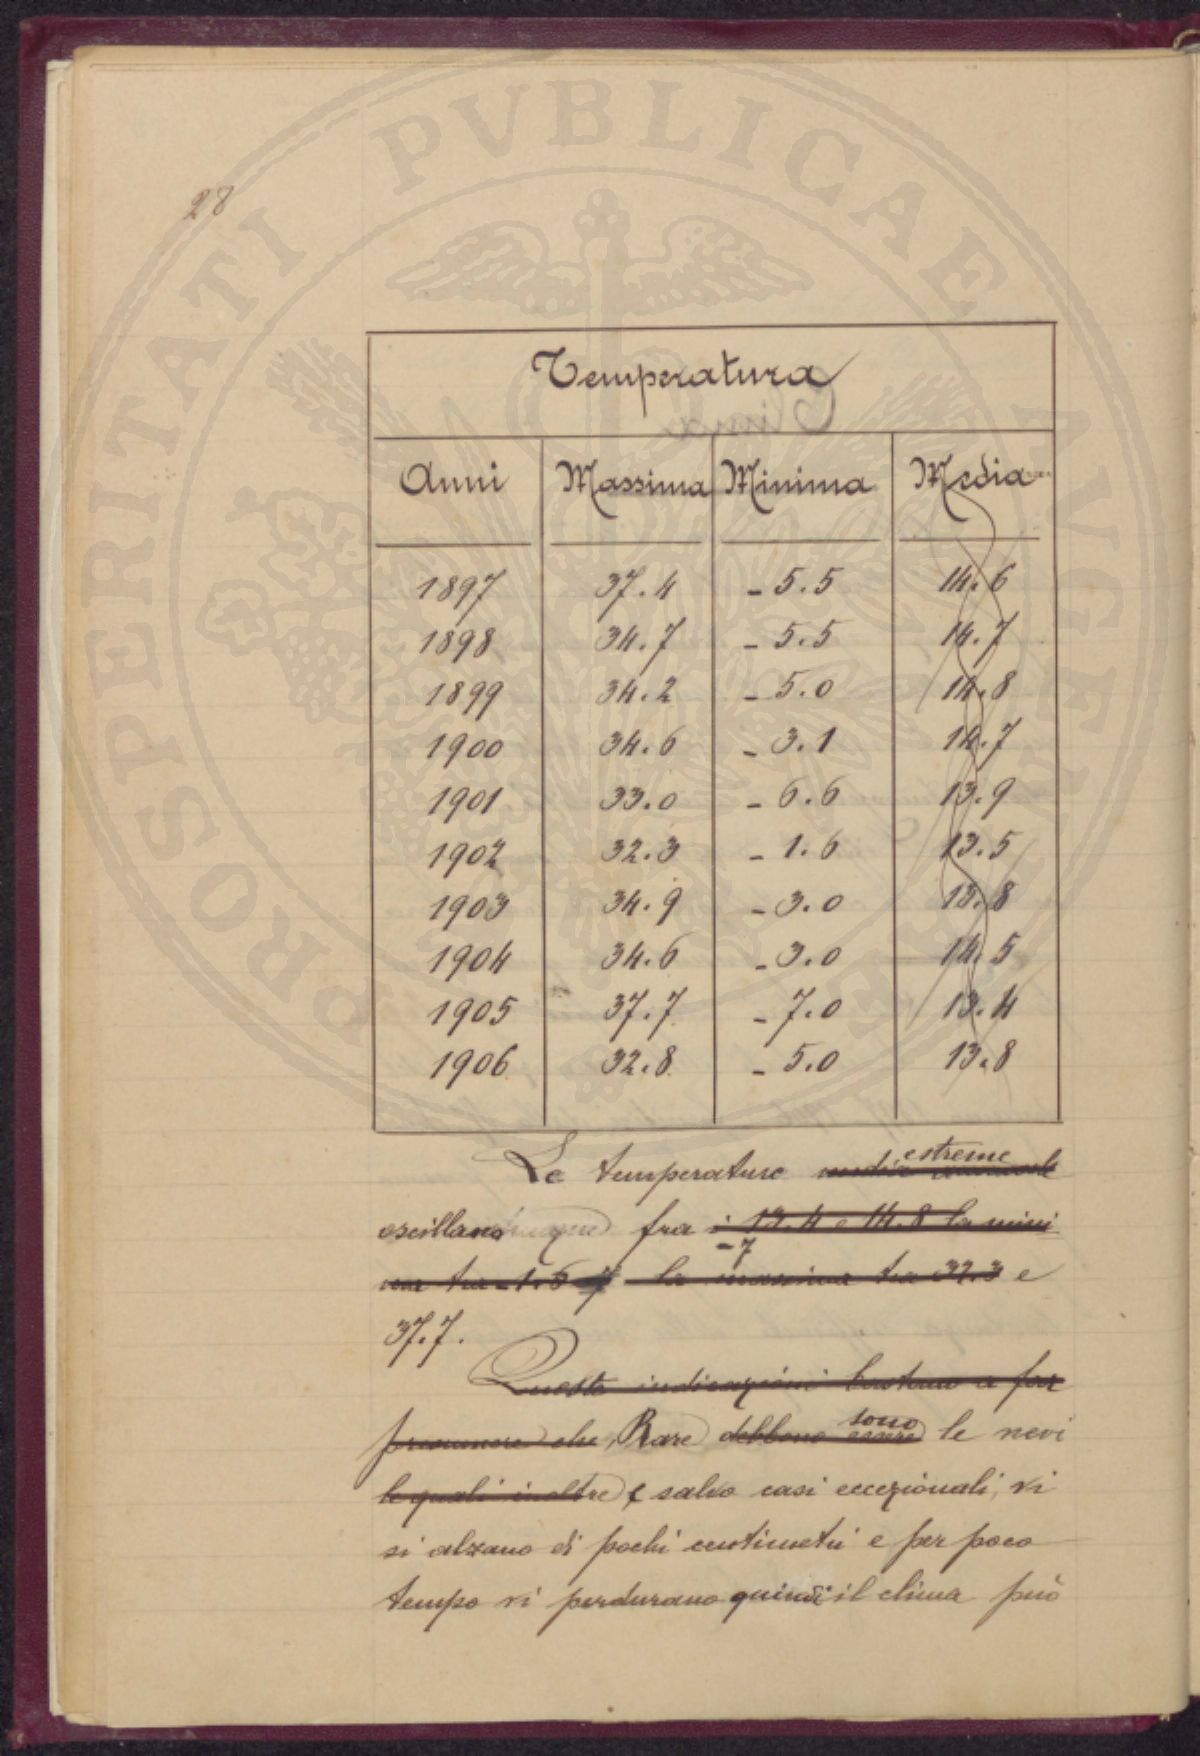 PROSPERITATI PVBLICAE AVGENDAE
28
Temperatura
Anni Massima Minima Media
1897 37.4 - 5.5 14.6
1898 34.7 - 5.5 14.7
1899 34.2 - 5.0 14.8
1900 34.6 - 3.1 14.7
1901 33.0 - 6.6 13.9
1902 32.3 - 1.6 13.5
1903 34.9 - 3.0 13.8
1904 34.6 - 3.0 14.5
1905 37.7 - 7.0 13.4
1906 32.8 - 5.0 13.8
estreme
Le temperature media annuale
oscillano fra i 13.4 e 14.8 la mini
- 7
ma tra - 1.6 7 la massima tra 32.3 e
37.7.
Queste indicazioni bastano a far
sono
presumere che, Rare debbono essere le nevi
le quali inoltre e salvo casi eccezionali, vi
si alzano di pochi centimetri e per poco
tempo vi perdurano quindi il clima può